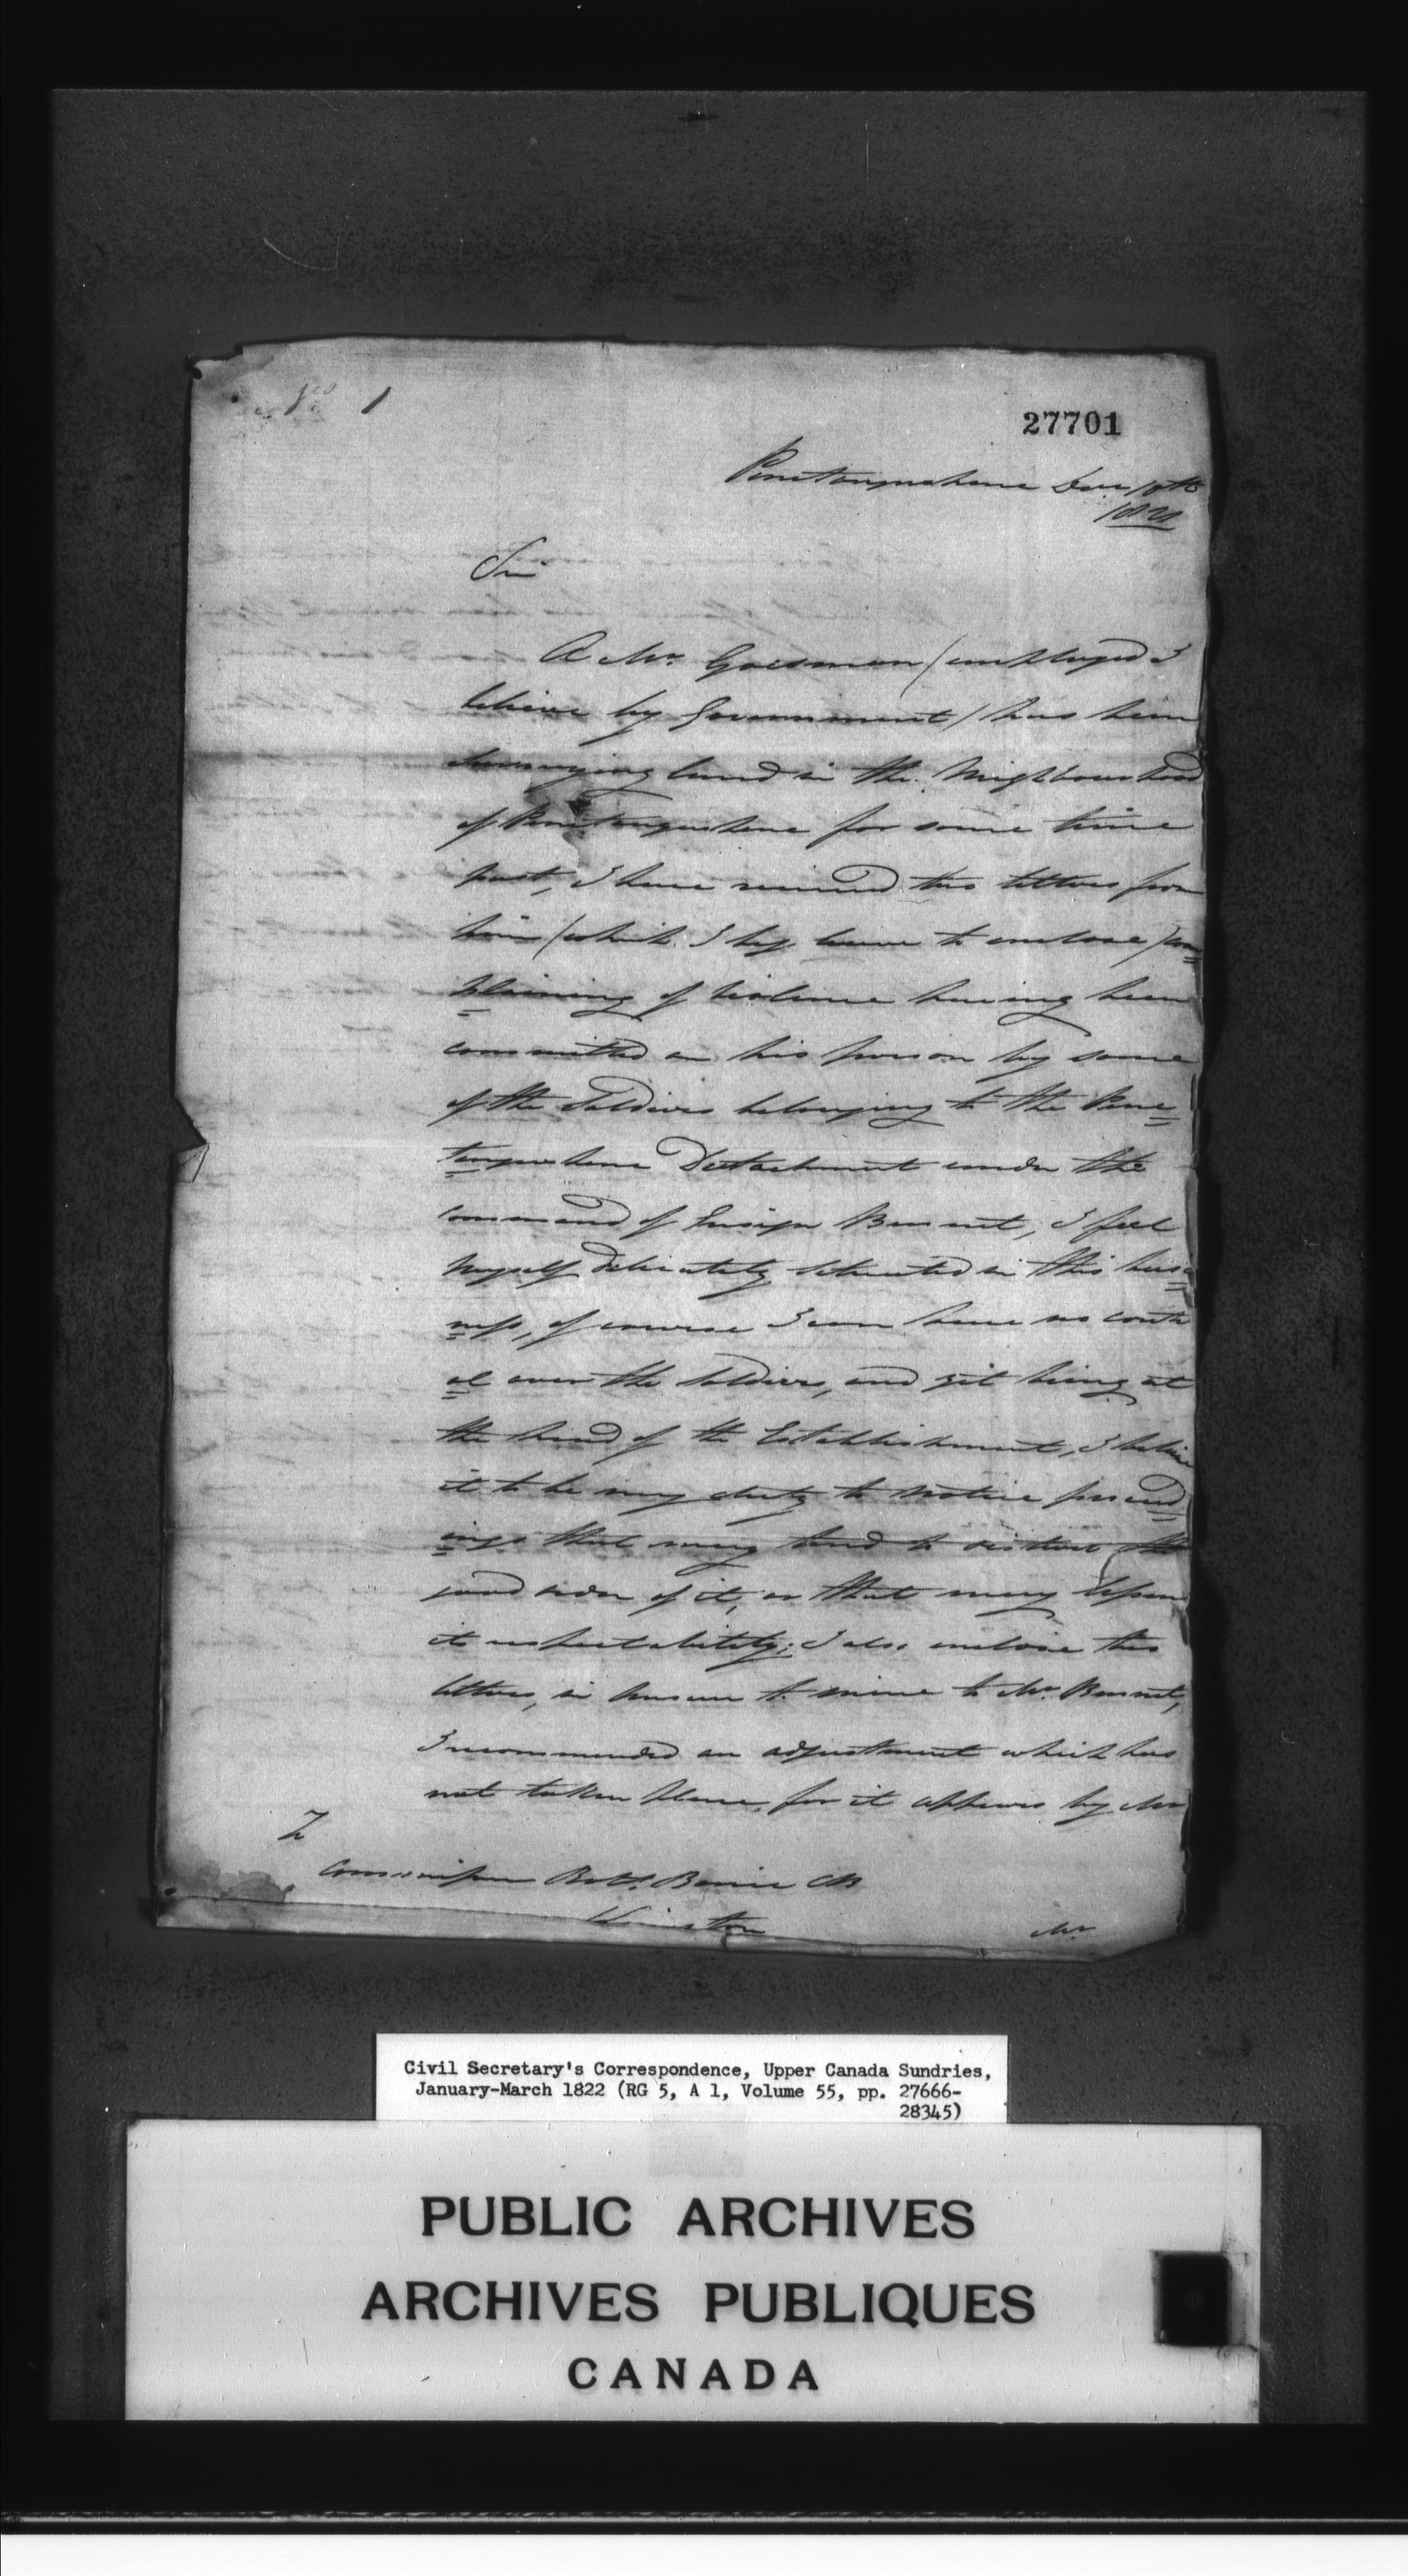 No 1
27701
Penetangushene Dec 10th
1821
Sir
A Mr. Goesman (employed I
believe by Government) has been
surveying land in the Neighbourhood
of Penetangushene for some time
past, I have received two letters from
him (which I beg leave to enclose) com=
=plaining of violence having been
committed on his person by some
of the Soldiers belonging to the Pene=
=tangushene Detachment under the
command of Ensign Burnet, I feel
myself delicately situated in this busi=
=ness, of course I can have no contr
=ol over the Soldiers, and yet being at
the head of the Establishment, I believe
it to be my duty to notice proceed=
=ings that may tend to disturb the
good order of it, or that may lessen
its respectability; I also enclose two
letters, in answer to mine to Mr. Burnet,
I recommended an adjustment which has
not taken place, for it appears by Mr
To
Commissioner Robt. Barrie CB
Kingston
Mr
Civil Secretary's Correspondence, Upper Canada Sundries,
January-March 1822 (RG 5, A 1, Volume 55, pp. 27666-
28345)
PUBLIC ARCHIVES
ARCHIVES PUBLIQUES
CANADA